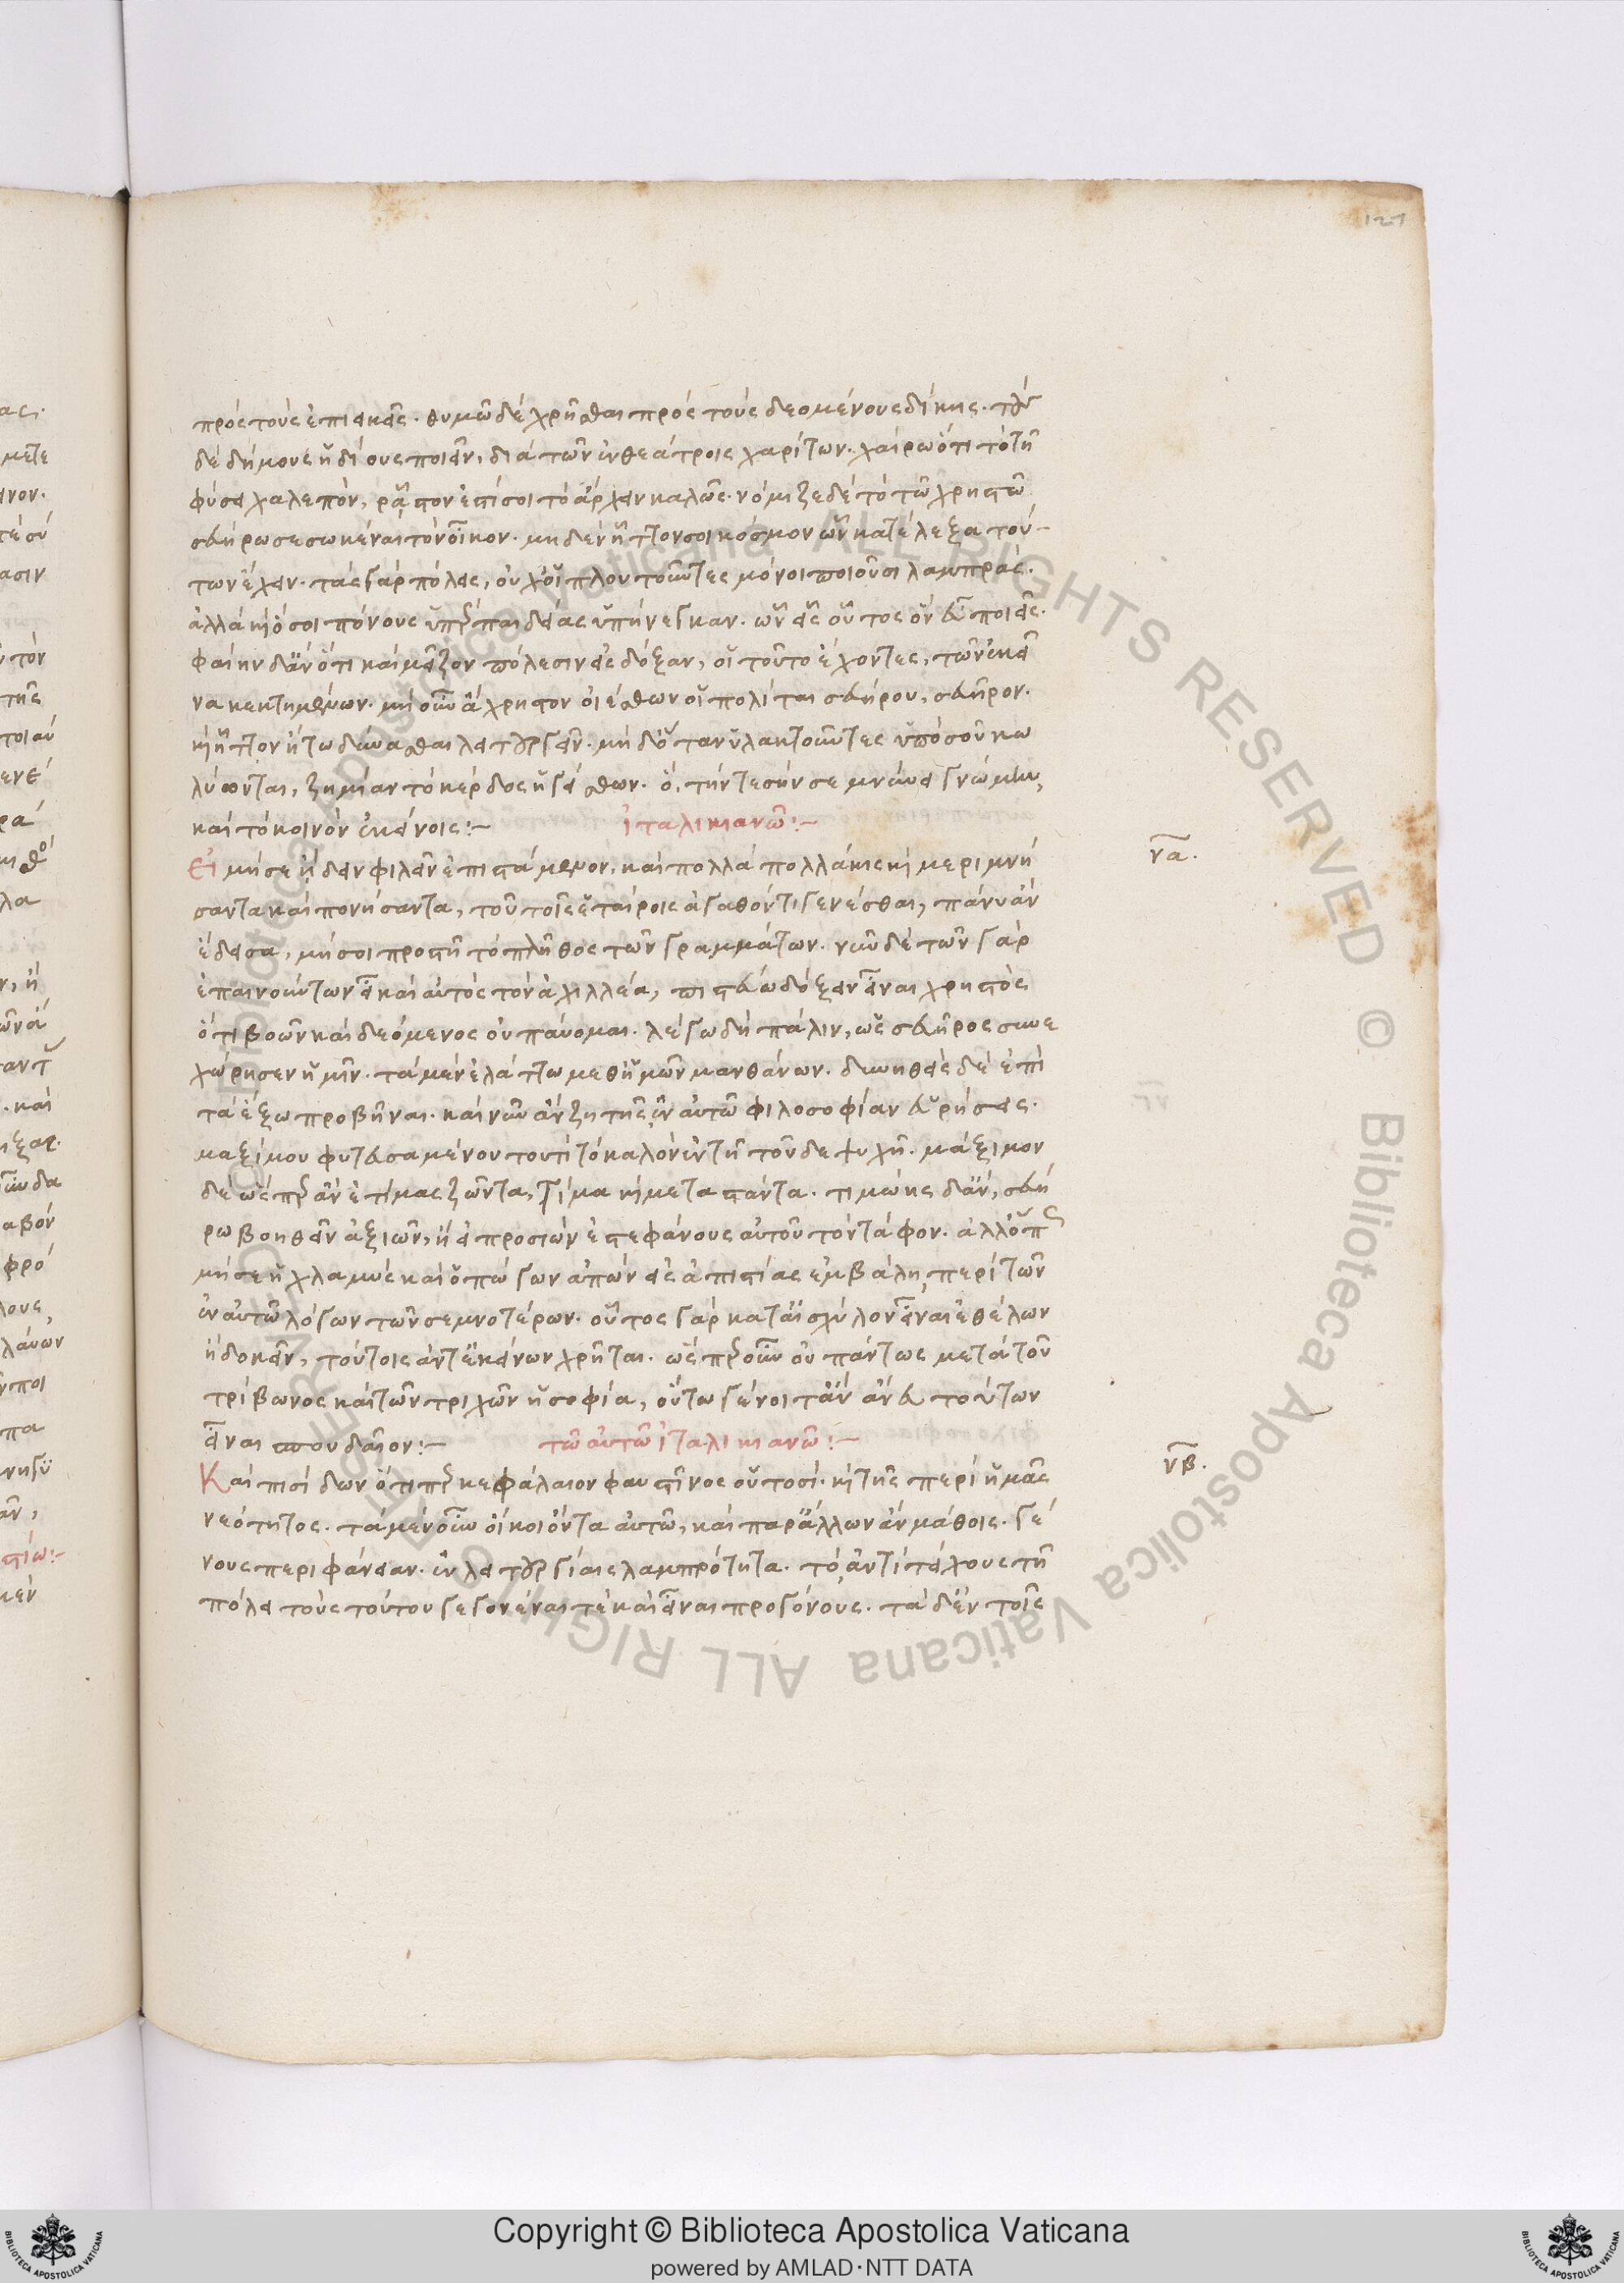 127
πρὸς τοὺς ἐπιεικεῖς. θυμῶ δὲ χρῆσθαι πρὸς τοὺς δεομένους δίκης. τοὺς
δὲ δήμους ἡδίους ποιεῖν, διὰ τῶν ἐν θεάτροις χαρίτων. χαίρω ὅτι τὸ τῆ
φύσει χαλεπὸν, ρᾷστον ἐστί σοι τὸ ἄρχειν καλῶς. νόμιζε δὲ τὸ τῶ χρηστῶ
σευήρω σεσωκέναι τὸν οἶκον. μηδὲν ἧττόν σοι κόσμον ὧν κατέλεξα τού-
των ἔχειν. τὰς γὰρ πόλεις, οὐχ οἱ πλουτοῦντες μόνοι ποιοῦσι λαμπράς.
ἀλλὰ καὶ ὅσοι πόνους ὑπὲρ παιδείας ὑπήνεγκαν. ὧν εἷς οὗτος ὃν εὖ ποιεῖς.
φαίην δ' ἂν ὅτι καὶ μείζον πόλεσιν εἰς δόξαν, οἱ τοῦτο ἔχοντες, τῶν ἐκεῖ
να κεκτημένων. μὴ οὖν ἄχρηστον οἰέσθων οἱ πολῖται σευήρου, σευῆρον.
καὶ ἧττον ἤτω δύνασθαι λειτουργεῖν. μηδ' ὅταν ὑλακτοῦντες ὑπὸ σοῦ κω
λύωνται, ζημίαν τὸ κέρδος ἡγείσθων. ὃ, τήν τε σήν σεμνύνει γνώμην,
καὶ τὸ κοινὸν ἐκείνοις:-
ἰταλικιανῶ:-
να.
Εἰ μή σε ᾔδειν φιλεῖν ἐπιστάμενον, καὶ πολλὰ πολλάκις καὶ μεριμνή
σαντα καὶ πονήσαντα, τοῦ τοῖς ἑταίροις ἀγαθόν τι γενέσθαι, πάνυ ἂν
ἔδεισα, μή σοι προστῆ τὸ πλῆθος τῶν γραμμάτων. νῦν δὲ τῶν γὰρ
ἐπαινούντων εἶ καὶ αὐτὸς τὸν ἀχιλλέα, πιστεύω δόξειν εἶναι χρηστὸς
ὅτι βοῶν καὶ δεόμενος οὐ παύομαι. λέγω δὴ πάλιν, ὡς σευῆρος συνε
χώρησεν ἡμῖν. τὰ μὲν ἐλάττω μεθ' ἡμῶν μανθάνων. διωχθεὶς δὲ ἐπὶ
τὰ ἔξω προβῆναι. καὶ νῦν ἂν ζητῆς ἐν αὐτῶ φιλοσοφίαν εὑρήσεις.
μαξίμου φυτευσαμένου τουτὶ τὸ καλὸν ἐν τῆ τοῦδε ψυχῆ. μάξιμον
δὲ ὥσπερ ἂν ἐτίμας ζῶντα, τίμα καὶ μεταστάντα. τιμώης δ' ἂν, σευή
ρω βοηθεῖν ἀξιῶν, ἢ εἰ προσιὼν ἐστεφάνους αὐτοῦ τὸν τάφον. ἀλλ' ὅπως
μή σε ἡ χλαμὺς καὶ ὁ πώγων ἀπὼν εἰς ἀπιστίας ἐμβάλη περὶ τῶν
ἐν αὐτῶ λόγων τῶν σεμνοτέρων. οὗτος γὰρ κατ' αἰσχύλον εἶναι ἐθέλων
ἢ δοκεῖν, τούτοις ἀντ' ἐκείνων χρῆται. ὥσπερ οὖν οὐ πάντως μετὰ τοῦ
τρίβωνος καὶ τῶν τριχῶν ἡ σοφία, οὕτω γένοιτ' ἂν ἄνευ τούτων
εἶναι σπουδαῖον:-
τῶ αὐτῶ ἰταλικιανῶ:-
νβ.
Καὶ πισίδων ὅτι περ κεφάλαιον φαυστῖνος οὑτοσί. καὶ τῆς περὶ ἡμᾶς
νεότητος. τὰ μὲν οὖν οἴκοι ὄντα αὐτῶ, καὶ παρ' ἄλλων ἂν μάθοις. γέ
νους περιφάνειαν. ἐν λειτουργίαις λαμπρότητα. τὸ ἀντὶ τείχους τῆ
πόλει τοὺς τούτου γεγονέναι τὲ καὶ εἶναι προγόνους. τὰ δ' ἐν τοῖς